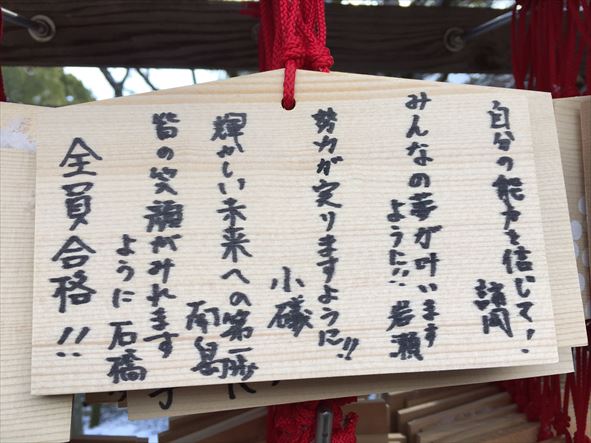 自分の能力を信じて!
諸岡
みんなの夢が叶います
ように!! 岩瀬
努力が実りますように!!
小磯
輝かしい未来への第一歩に
南島
皆の笑顔がみれます
ように 石橋
全員合格!!